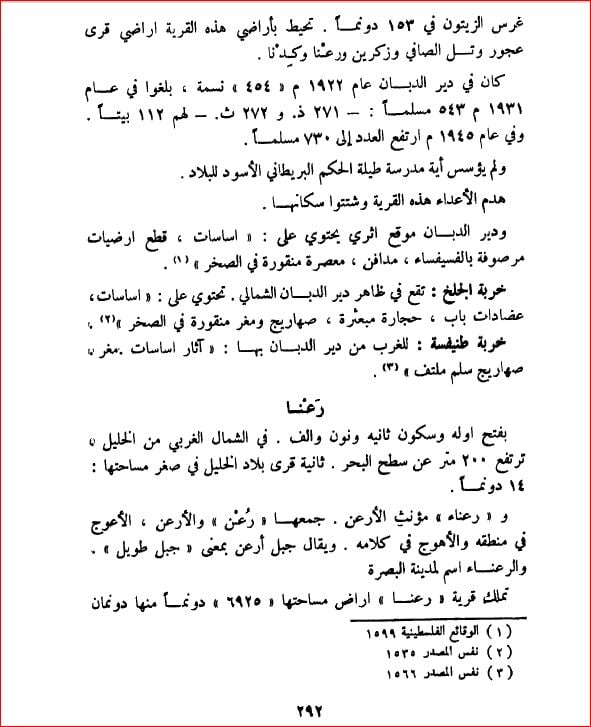 غرس الزيتون في ١٥٣ دونماً . تحيط بأراضي هذه القرية اراضي قرى
عجور وتل الصافي وزكرين ورعْنا وكِدْنا .
كان في دير الدبان عام ١٩٢٢ م « ٤٥٤ » نسمة ، بلغوا في عام
١٩٣١ م ٥٤٣ مسلماً : — ٢٧١ ذ. و ٢٧٢ ث. — لهم ١١٢ بيتاً .
وفي عام ١٩٤٥ م ارتفع العدد إلى ٧٣٠ مسلماً .
ولم يؤسس أية مدرسة طيلة الحكم البريطاني الأسود للبلاد .
هدم الأعداء هذه القرية وشتتوا سكانها .
ودير الدبان موقع اثري يحتوي على : « اساسات ، قطع ارضيات
مرصوفة بالفسيفساء ، مدافن ، معصرة منقورة في الصخر » (١) .
خربة الجلخ : تقع في ظاهر دير الدبان الشمالي . تحتوي على : « اساسات،
عضادات باب ، حجارة مبعثرة ، صهاريج ومغر منقورة في الصخر »(٢) .
خربة طنيفسة : للغرب من دير الدبان بها : « آثار اساسات .مغر و
صهاريج سلم ملتف » (٣) .
رَعْنا
بفتح اوله وسكون ثانيه ونون والف . في الشمال الغربي من الخليل و
ترتفع ٢٠٠ متر عن سطح البحر . ثانية قرى بلاد الخليل في صغر مساحتها :
١٤ دونماً .
و « رعناء » مؤنث الأرعن . جمعها « رُعْن » والأرعن ، الأعوج
في منطقه والأهوج في كلامه . ويقال جبل أرعن بمعنى « جبل طويل » .
والرعناء اسم لمدينة البصرة
تملك قرية « رعنا » اراض مساحتها « ٦٩٢٥ » دونماً منها دونمان
(١) الوقائع الفلسطينية ١٥٩٩
(٢) نفس المصدر ١٥٣٥
(٣) نفس المصدر ١٥٦٦
٢٩٢